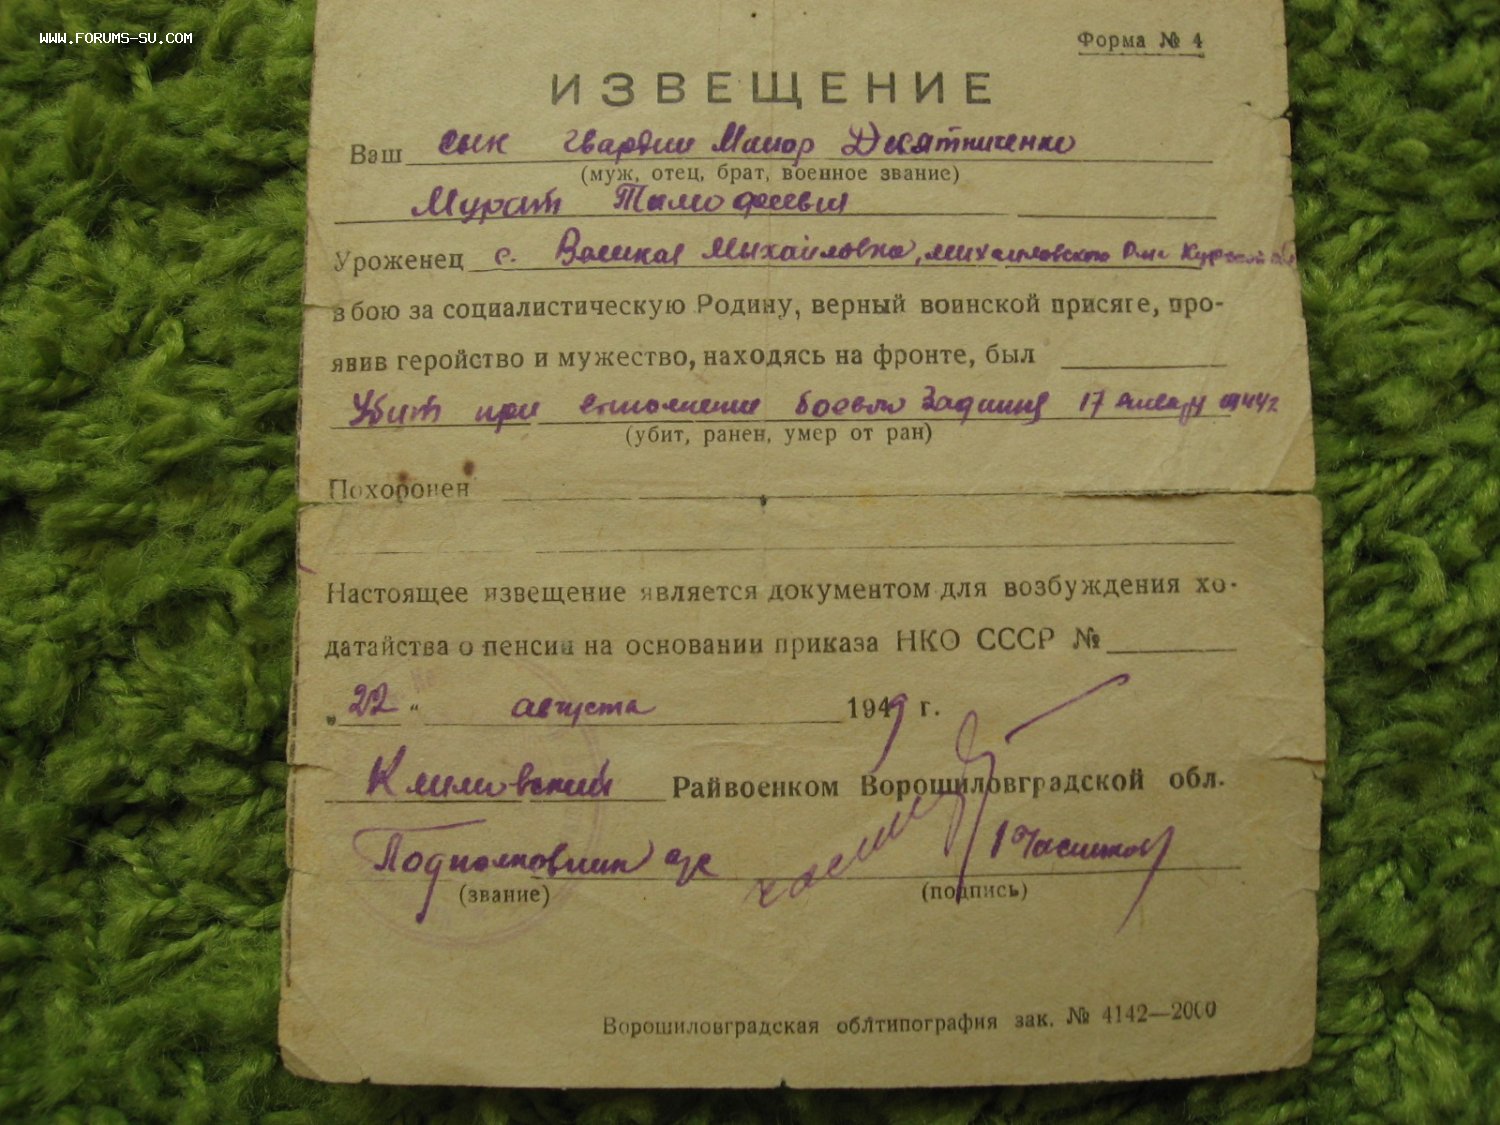 WWW.FORUMS-SU.COM
Форма № 4
ИЗВЕЩЕНИЕ
Ваш сын гвардии Майор Десятниченко
(муж, отец, брат, военное звание)
Мурат Тимофеевич
Уроженец с. Великая Михайловка, Михайловского Курской
в бою за социалистическую Родину, верный воинской присяге, про-
явив геройство и мужество, находясь на фронте, был
Убит при боевого задания 17
(убит, ранен, умер от ран)
Похоронен
Настоящее извещение является документом для возбуждения хо-
датайства о пенсии на основании приказа НКО СССР №
„22“ августа 1949 г.
Климовский Райвоенком Ворошиловградской обл.
Подполковник а/с
(звание) (подпись)
Ворошиловградская облтипография зак. № 4142—2000